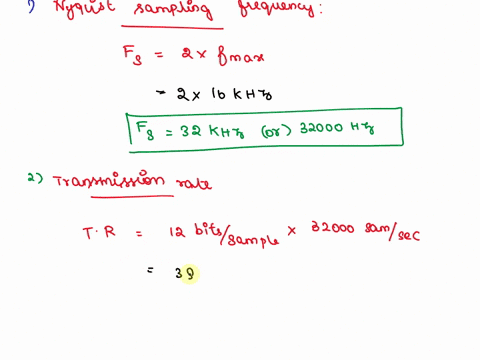 1) Nyquist sampling frequency:
Fs = 2 × fmax
= 2 × 16 KHz
Fs = 32 KHz (or) 32000 Hz
2) Transmission rate
T.R = 12 bits/sample × 32000 sam/sec
= 38